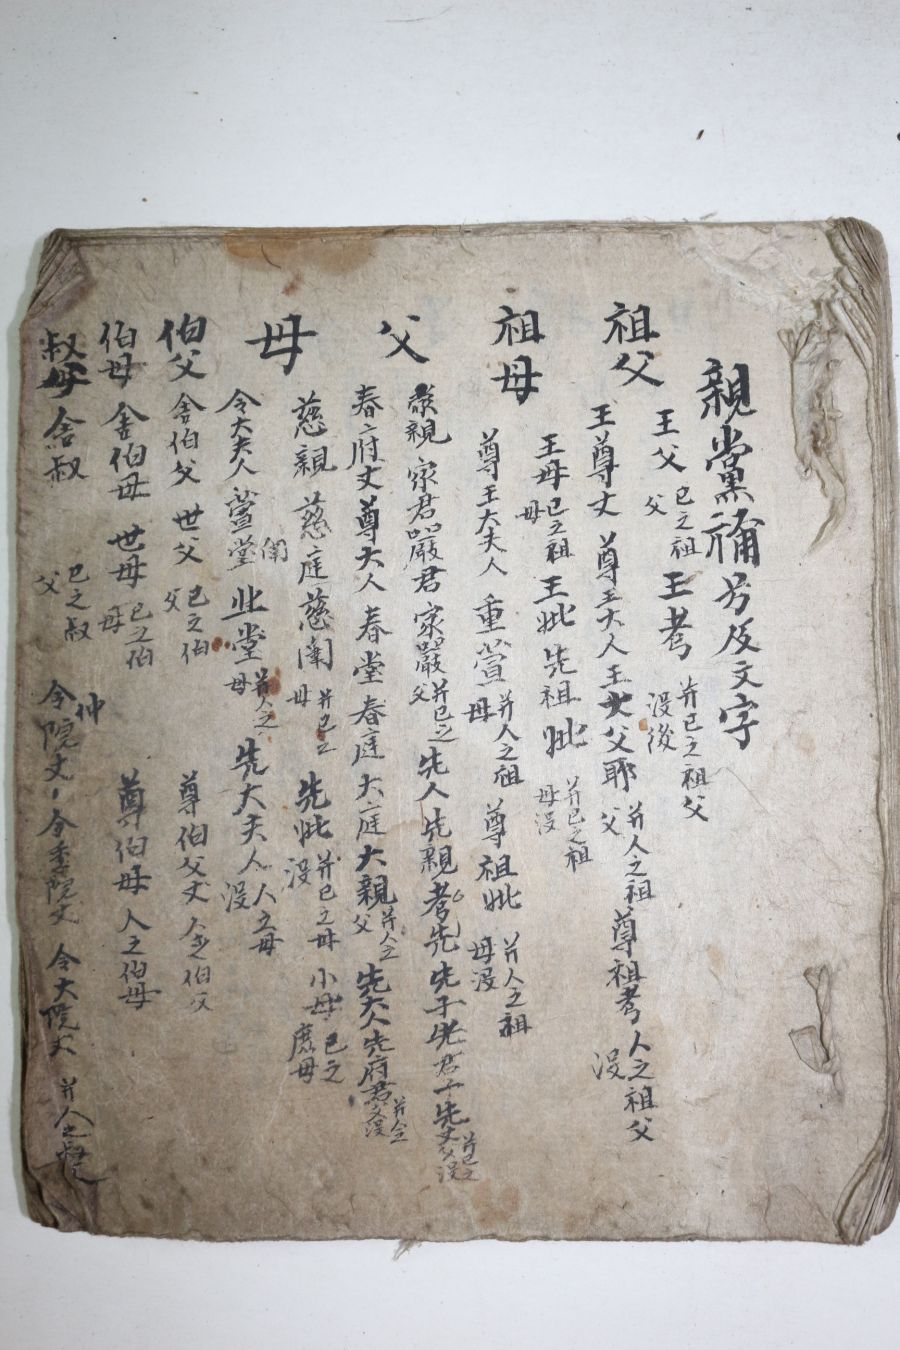 親黨稱号及文字
祖父 王父 己之祖父 王考 並己之祖父沒後
王尊丈 尊王大人 王大父耶 並人之祖父 尊祖考 人之祖父沒
祖母 王母 己之祖母 王妣 先祖妣 並己之祖母沒
尊王大夫人 重萱 並人之祖母 尊祖妣 並人之祖母沒
父 親 家君 嚴君 家嚴 並己之父 先人 先親 考 先 先子 先君子 先丈 並己之父沒
春府丈 尊大人 春堂 春庭 大庭 大親 並人之父 先大人 先府君 並人之父沒
母 慈親 慈庭 慈闈 並己之母 先妣 並己之母沒 小母 己之庶母
令大夫人 萱堂 闈 北堂 並人之母 先大夫人 人之母沒
伯父 舍伯父 世父 己之伯父 尊伯父丈 人之伯父
伯母 舍伯母 世母 己之伯母 尊伯母 人之伯母
叔父 舍叔 己之叔父 令仲院丈 令季院丈 令大院丈 並人之叔父